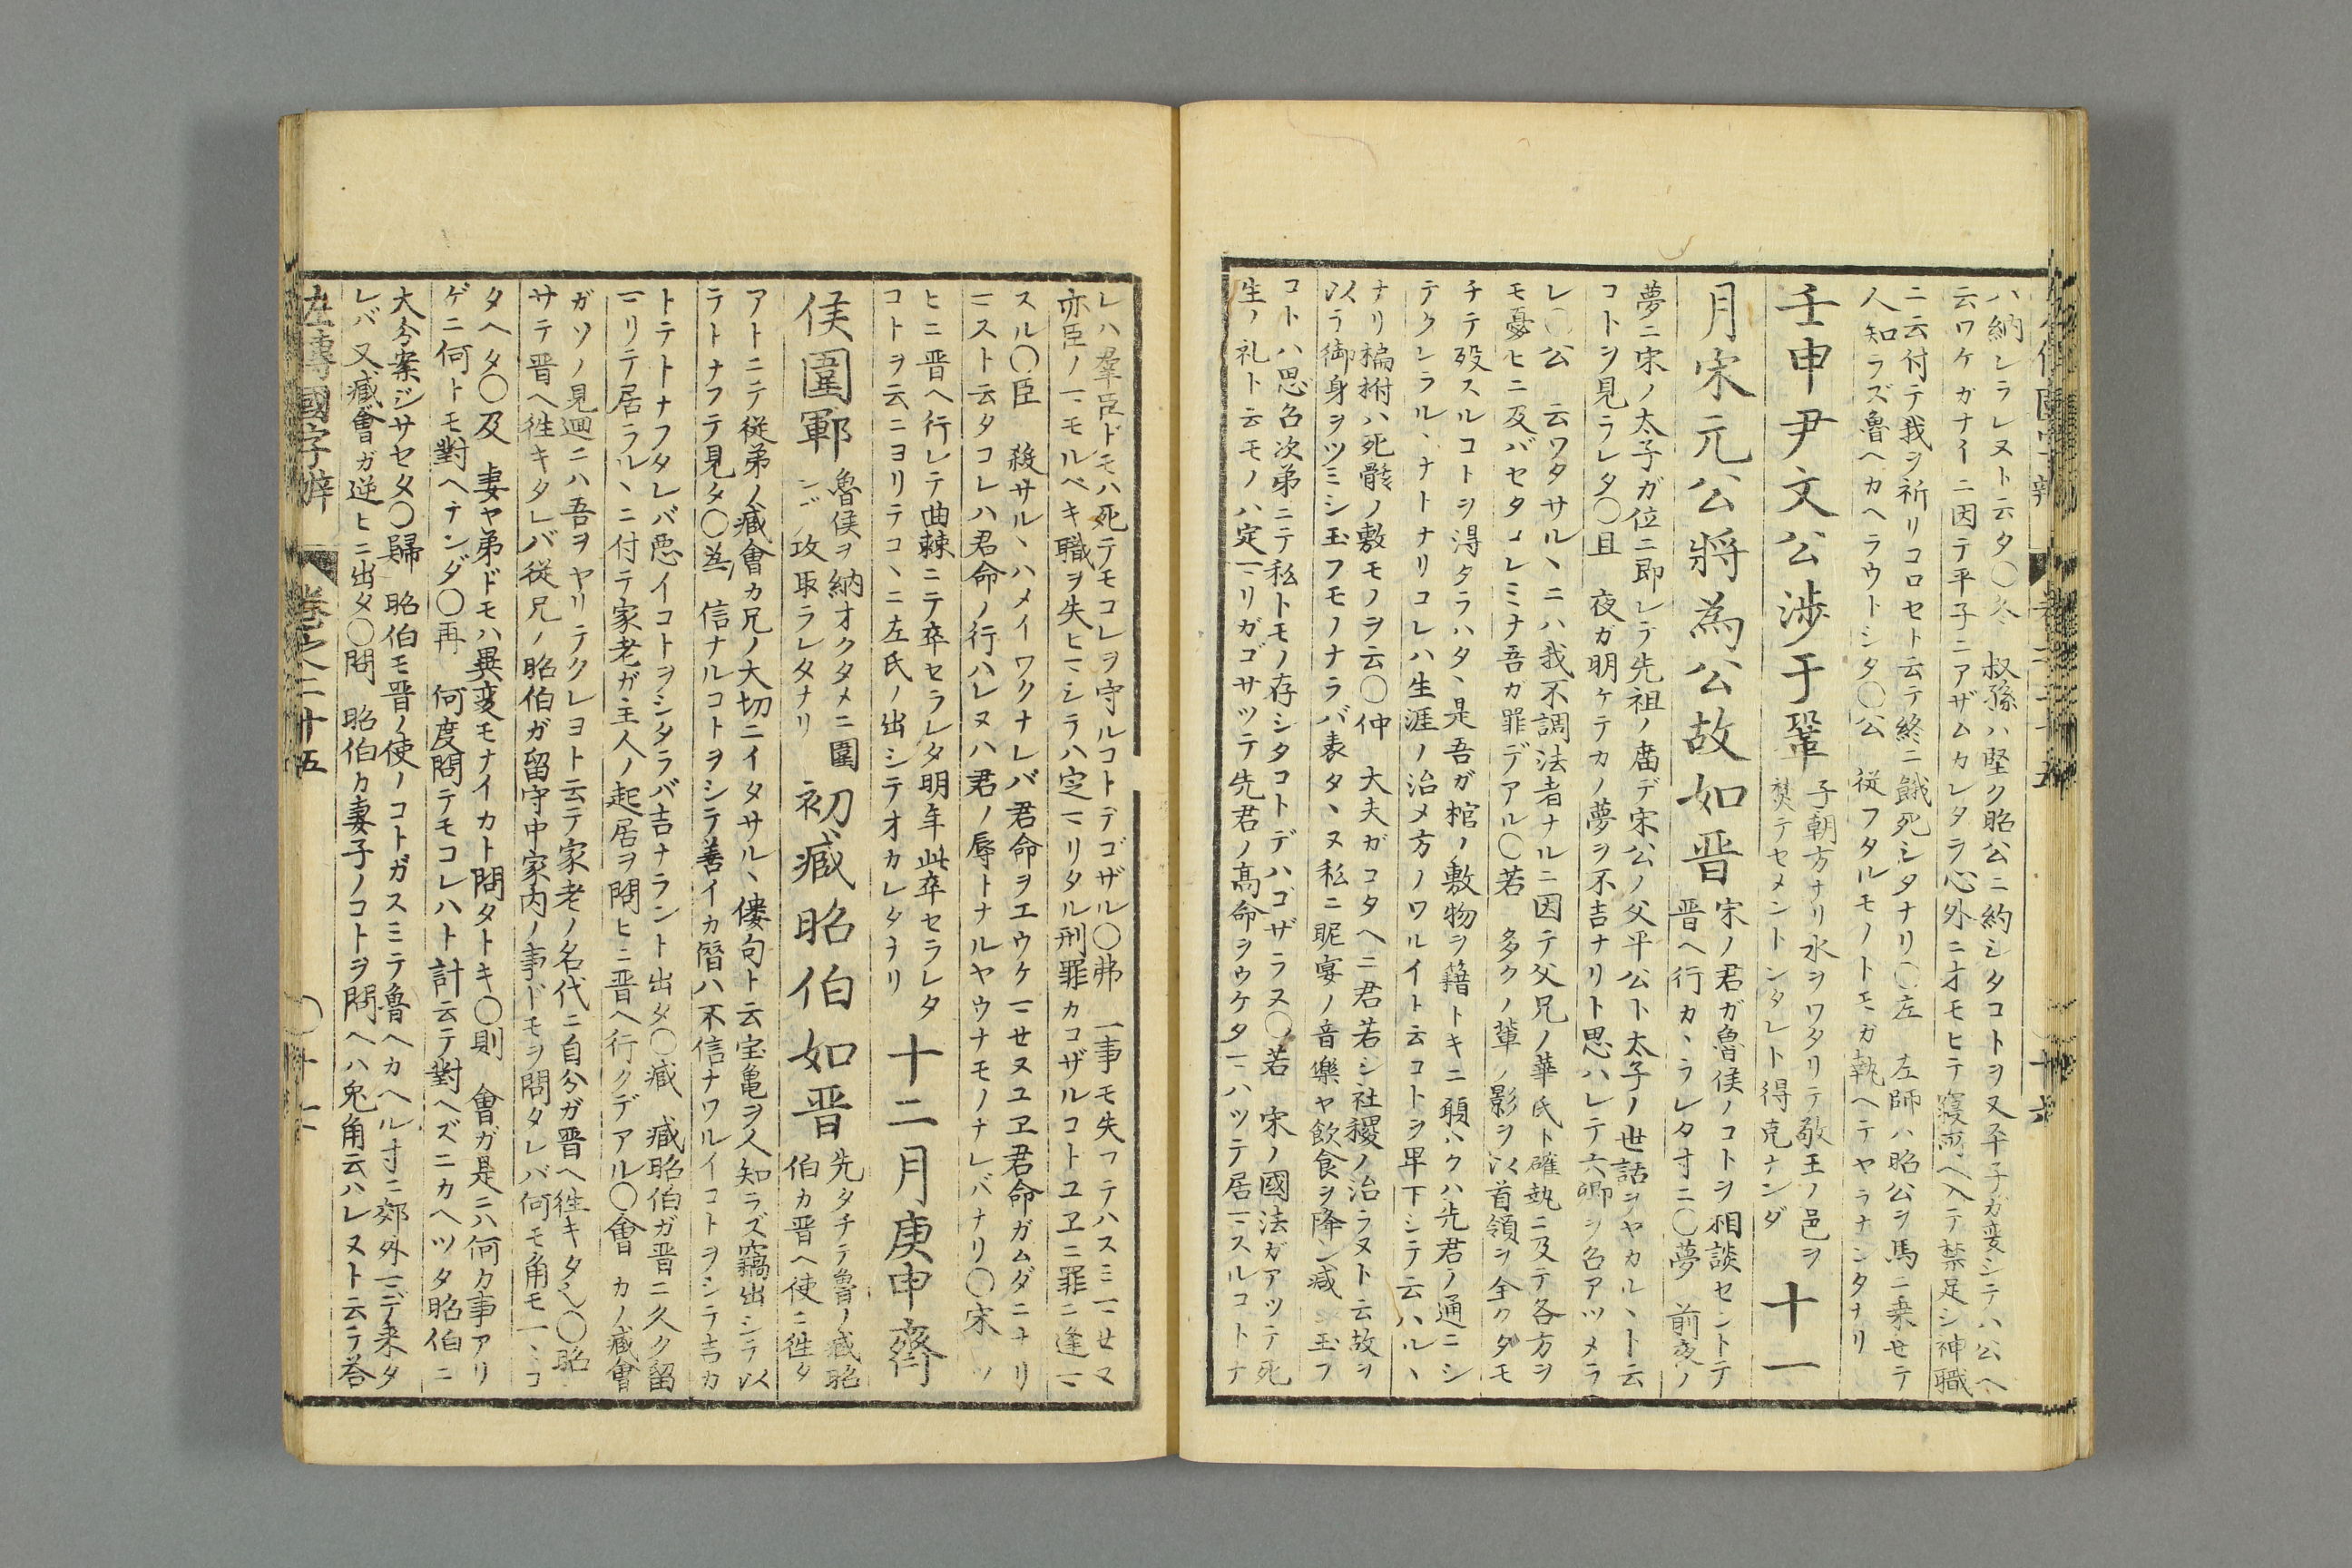 ハ納シラレヌト云タ〇冬　叔孫ハ堅ク昭公ニ約シタコトヲ又平子ガ変シテハ公ヘ
云ワケガナイニ因テ平子ニアザムカレタラ心外ニオモヒテ寝所ヘ入テ禁足シ神職
ニ云付テ我ヲ祈リコロセト云テ終ニ餓死シタナリ〇左　左師ハ昭公ヲ馬ニ乗セテ
人知ラズ魯ヘカヘラウトシタ〇公　従フタルモノトモガ執ヘテヤラナンタナリ
壬申尹文公渉于鞏
子朝方ナリ水ヲワタリテ敬王ノ邑ヲ
焚テセメントンタレト得克ナンダ
十一
月宋元公將為公故如晋
宋ノ君ガ魯侯ノコトヲ相談セントテ
晋ヘ行カヽラレタ寸ニ〇夢　前夜ノ
夢ニ宋ノ太子ガ位ニ即レテ先祖ノ庿デ宋公ノ父平公ト太子ノ世話ヲヤカルヽト云
コトヲ見ラレタ〇且　夜ガ明ケテカノ夢ヲ不吉ナリト思ハレテ六卿ヲ召アツメラ
レ〇公　云ワタサルヽニハ我不調法者ナルニ因テ父兄ノ華氏ト確執ニ及テ各方ヲ
モ憂ヒニ及バセタコレミナ吾ガ罪デアル〇若　多クノ輩ノ影ヲ以首領ヲ全クタモ
チテ殁スルコトヲ得タラハタヽ是吾ガ棺ノ敷物ヲ籍トキニ願ハクハ先君ノ通ニシ
テクレラルヽナトナリコレハ生涯ノ治メ方ノワルイト云コトヲ卑下シテ云ハルヽ
ナリ楄柎ハ死骸ノ敷モノヲ云〇仲　大夫ガコタヘニ君若シ社稷ノ治ラヌト云故ヲ
以ラ御身ヲツミシ玉フモノナラバ表タヽヌ私ニ昵宴ノ音樂ヤ飲食ヲ降ン減　玉フ
コトハ思召次第ニテ私トモノ存シタコトデハゴザラヌ〇若　宋ノ國法ガアツテ死
生ノ礼ト云モノハ定マリガゴサツテ先君ノ髙命ヲウケタマハツテ居マスルコトナ
レハ羣臣ドモハ死テモコレヲ守ルコトデゴザル〇弗　一事モ失フテハスミマせヌ
亦臣ノマモルベキ職ヲ失ヒマシラハ定マリタル刑罪カコザルコトユヱニ罪ニ逢マ
スル〇臣　殺サルヽハメイワクナレバ君命ヲエウケマせヌユヱ君命ガムダニナリ
マスト云タコレハ君命ノ行ハレヌハ君ノ辱トナルヤウナモノナレバナリ〇宋　ツ
ヒニ晋ヘ行レテ曲棘ニテ卒セラレタ明年此卒セラレタ
コトヲ云ニヨリテコヽニ左氏ノ出シテオカレタナリ
十二月庚申齊
侯圍鄆
魯侯ヲ納オクタメニ圍
ンデ攻取ラレタナリ
初臧昭伯如晋
先タチテ魯ノ臧昭
伯カ晋ヘ使ニ徃タ
アトニテ従弟ノ臧會カ兄ノ大切ニイタサルヽ僂句ト云宝亀ヲ人知ラズ竊出シテ以
ラトナフテ見タ〇為　信ナルコトヲシテ善イカ僭ハ不信ナワルイコトヲシテ吉カ
トテトナフタレバ悪イコトヲシタラバ吉ナラント出タ〇臧　臧昭伯ガ晋ニ久ク留
マリテ居ラルヽニ付テ家老ガ主人ノ起居ヲ問ヒニ晋ヘ行クデアル〇會　カノ臧會
ガソノ見廻ニハ吾ヲヤリテクレヨト云テ家老ノ名代ニ自分ガ晋ヘ徃キタ〇昭
サテ晋ヘ徃キタレバ従兄ノ昭伯ガ留守中家内ノ事ドモヲ問タレバ何モ角モマヽコ
タヘタ〇及　妻ヤ弟ドモハ異変モナイカト問タトキ〇則　會ガ是ニハ何カ事アリ
ゲニ何トモ對ヘナンダ〇再　何度問テモコレハト計云テ對ヘズニカヘツタ昭伯ニ
大分案ジサセタ〇歸　昭伯モ晋ノ使ノコトガスミテ魯ヘカヘル寸ニ郊外マデ来タ
レバ又臧會ガ逆ヒニ出タ〇問　昭伯カ妻子ノコトヲ問ヘハ兎角云ハレヌト云ラ荅
左傳國字辯　卷之二十五